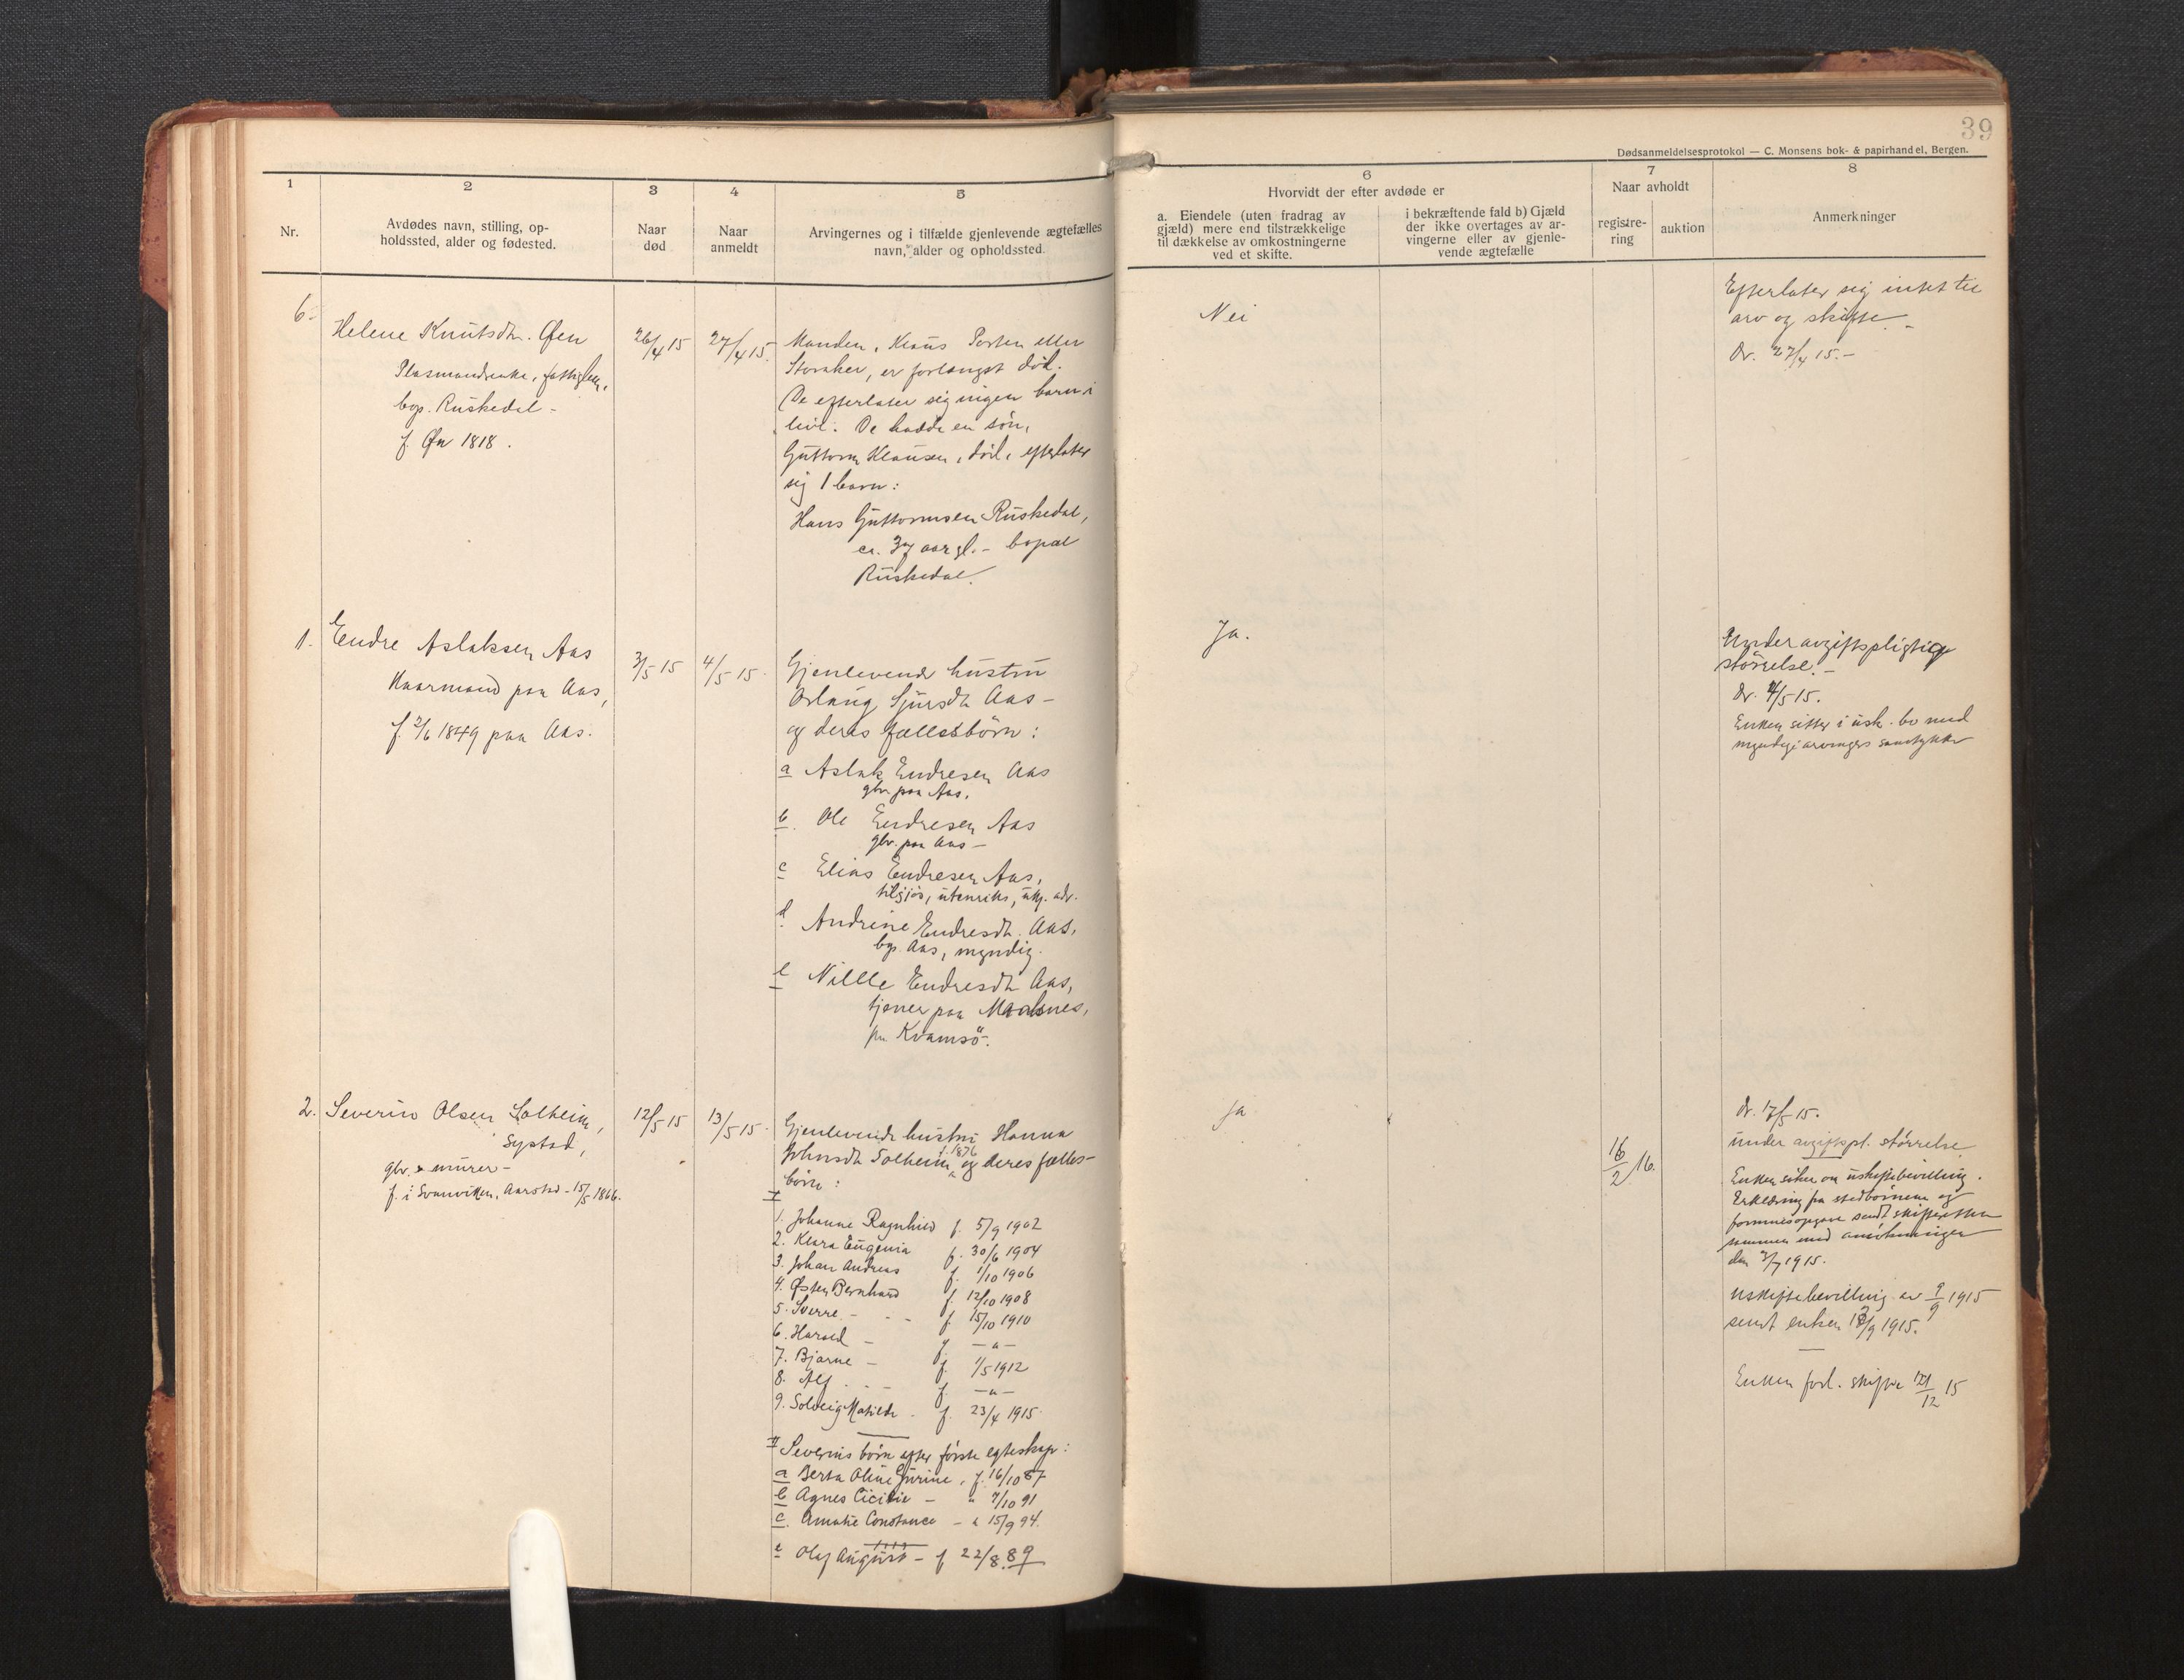 39
Dødsanmeldelsesprotokol — C. Monsens bok- & papirhandel, Bergen.
1
Nr.
2
Avdødes navn, stilling, op-
holdssted, alder og fødested.
3
Naar
død
4
Naar
anmeldt
5
Arvingernes og i tilfælde gjenlevende ægtefælles
navn, alder og opholdssted.
6
Hvorvidt der efter avdøde er
a. Eiendele (uten fradrag av
gjæld) mere end tilstrækkelige
til dækkelse av omkostningerne
ved et skifte.
i bekræftende fald b) Gjæld
der ikke overtages av ar-
vingerne eller av gjenle-
vende ægtefælle
7
Naar avholdt
registre-
ring
auktion
8
Anmerkninger
6.
Helene Knutsdtr. Øen
Plasmandsenke, fattiglem,
bop. Ruskedal -
f. Øen 1818.
26/4 15
27/4 15.
Manden, Klaus Porten eller
Storaker, er forlængst död.
De efterlater sig ingen barn i
live. De hadde en sön,
Guttorm Klausen, död, efterlater
sig 1 barn:
Hans Guttormsen Ruskedal,
ca. 37 aar gl. - bopæl
Ruskedal.
Nei
Efterlater sig intet til
arv og skifte. -
Dr. 27/4 15. -
1.
Endre Aslaksen Aas
Kaarmand paa Aas,
f. 2/6 1849 paa Aas.
3/5 15
4/5 15.
Gjenlevende hustru
Oslaug Sjursdtr Aas -
og deres fællesbörn:
a Aslak Endresen Aas
gbr paa Aas.
b. Ole Endresen Aas
gbr. paa Aas -
c Elias Endresen Aas,
tilsjös, utenriks, ukj. adr.
d. Andrine Endresdtr. Aas,
bop. Aas, myndig.
e Nille Endresdtr Aas,
tjener paa Maalsnes,
pr. Kvamsö.
Ja.
Under avgiftspligtig
störrelse. -
Dr. 4/5 15.
Enken sitter i usk. bo med
myndige arvingers samtykke
2.
Severin Olsen Solheim,
Systad,
gbr. & murer -
f. i Svanviken, Aarstad - 15/5 1866.
12/5 15
13/5 15.
Gjenlevende hustru Hanna
Johnsdtr Solheim f. 1876 og deres fælles-
börn:
I
1. Johanne Ragnhild f. 5/9 1902
2. Klara Eugenia f. 30/6 1904
3. Johan Andreas f. 1/10 1906
4. Østen Bernhard f. 12/10 1908
5. Sverre - f 15/10 1910
6. Harald - f - " -
7. Bjarne - f. 1/5 1912
8. Alf - f. - " -
9. Solveig Matilde - f. 23/4 1915
II Severins börn efter förste egteskap:
a Berta Oline Gurine, f. 16/10 87
b Agnes Cicilie - " 7/10 91
c. Amalie Constance - " 15/9 94.
e Olaf August - f 22/8. 89
Ja
16/2 16.
Dr. 17/5 15.
under avgiftspl. störrelse
Enken söker om uskiftebevilling.
Erklæring fra stedbörnene og
formuesopgave sendt skifteretten
sammen med ansökningen
den 3/7 1915.
Uskiftebevilling av 9/9 1915
sendt enken 13/9 1915.
Enken forl. skifte 12 15